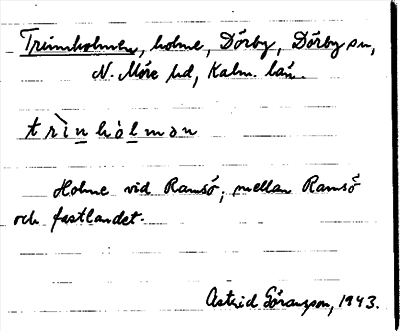 Trinnholmen, holme, Dörby, Dörby sn,
N. Möre hd, Kalm. län.
trìnhòlmən
Holme vid Ramsö, mellan Ramsö
och fastlandet.
Astrid Göranzson, 1943.